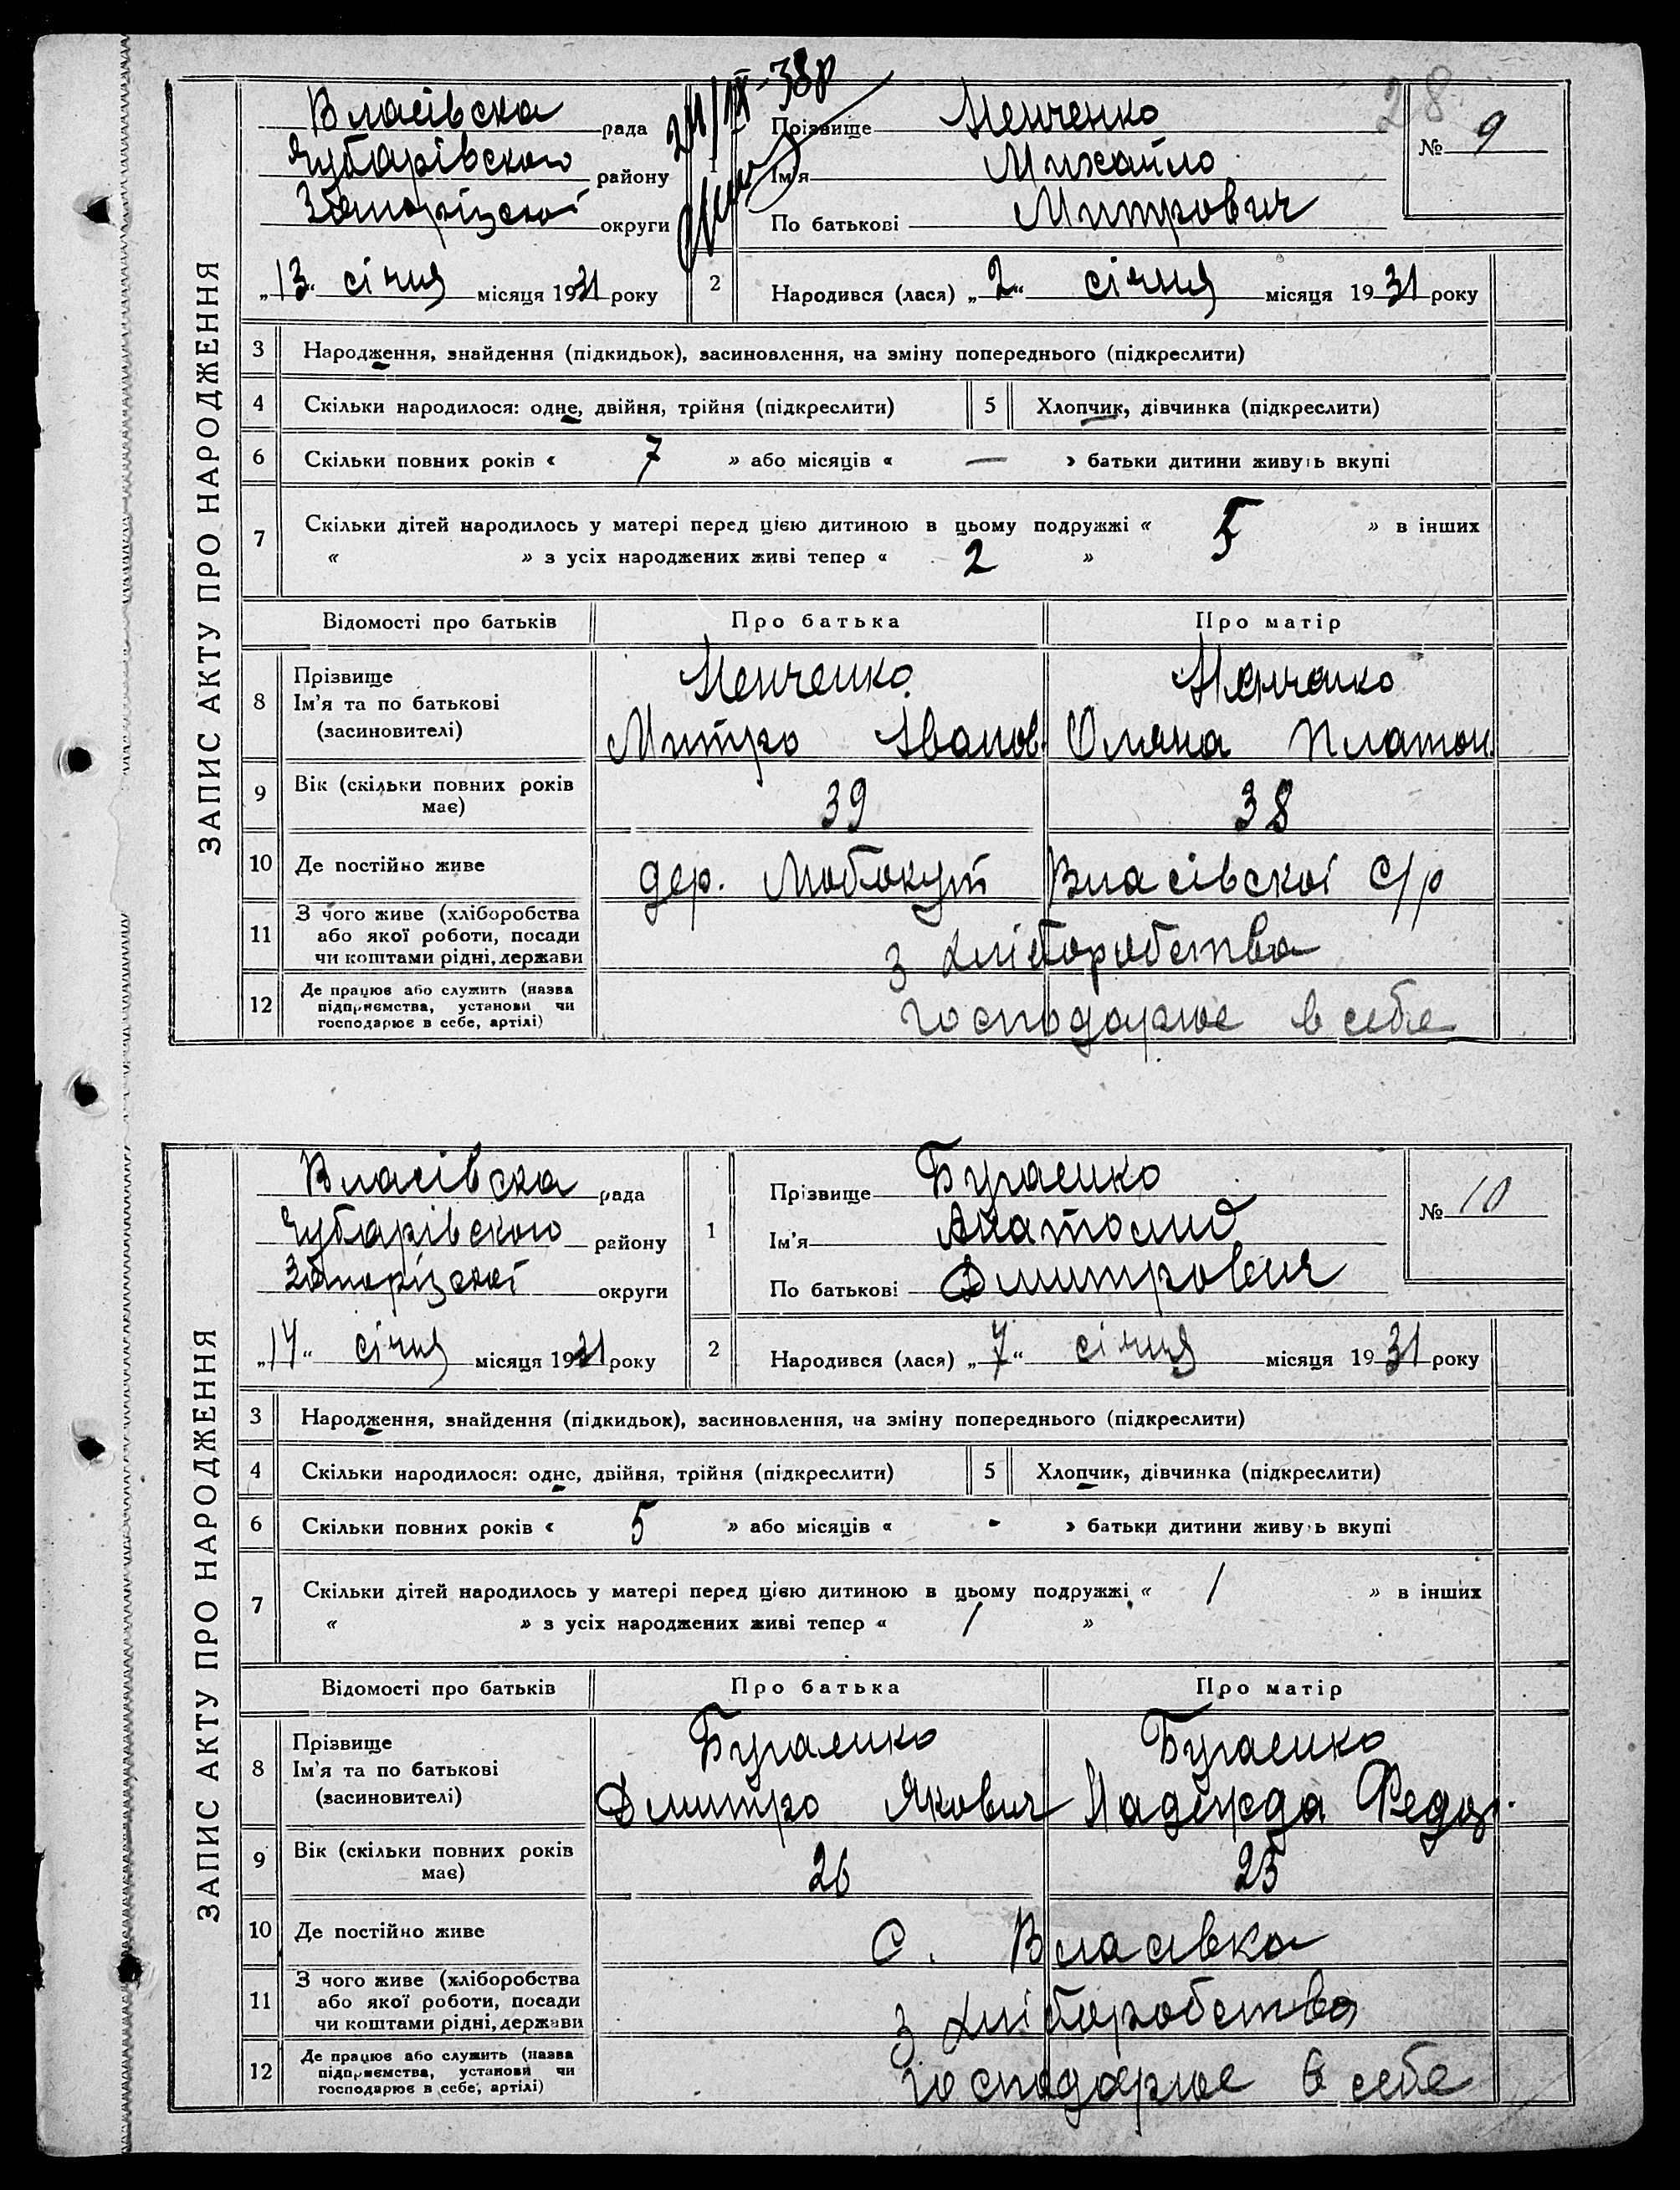 ЗАПИС АКТУ ПРО НАРОДЖЕННЯ
28
Власівска рада
Чубарівского району
Запоріцскої округи
„13“ січня місяця 1931 року
24/IX-38р
1 Прізвище Ненченко
Ім'я Михайло
По батькові Митрович
№ 9
2 Народився (лася) „2“ січня місяця 1931 року
3 Народження, знайдення (підкидьок), засиновлення, на зміну попереднього (підкреслити)
4 Скільки народилося: одне, двійня, трійня (підкреслити) 5 Хлопчик, дівчинка (підкреслити)
6 Скільки повних років « 7 » або місяців « — » батьки дитини живуть вкупі
7 Скільки дітей народилось у матері перед цією дитиною в цьому подружжі « 5 » в інших
« » з усіх народжених живі тепер « 2 »
Відомості про батьків Про батька Про матір
8 Прізвище Ненченко Ненченко
Ім'я та по батькові
(засновителі) Митро Іванов. Оляна Платон.
9 Вік (скільки повних років
має) 39 38
10 Де постійно живе дер. Любокут Власівскої С/р
11 З чого живе (хліборобства
або якої роботи, посади
чи коштами рідні, держави з хліборобства
12 Де працює або служить (назва
підприємства, установи чи
господарює в себе, артілі) господарює в себе
ЗАПИС АКТУ ПРО НАРОДЖЕННЯ
Власівска рада
Чубарівского району
Запоріцскої округи
„14“ січня місяця 1931 року
1 Прізвище Бугаенко
Ім'я Анатолий
По батькові Дмитрович
№ 10
2 Народився (лася) „7“ січня місяця 1931 року
3 Народження, знайдення (підкидьок), засиновлення, на зміну попереднього (підкреслити)
4 Скільки народилося: одне, двійня, трійня (підкреслити) 5 Хлопчик, дівчинка (підкреслити)
6 Скільки повних років « 5 » або місяців « - » батьки дитини живуть вкупі
7 Скільки дітей народилось у матері перед цією дитиною в цьому подружжі « 1 » в інших
« » з усіх народжених живі тепер « 1 »
Відомості про батьків Про батька Про матір
8 Прізвище Бугаенко Бугаенко
Ім'я та по батькові
(засиновителі) Дмитро Якович Надежда Федор.
9 Вік (скільки повних років
має) 26 25
10 Де постійно живе С. Власівка
11 З чого живе (хліборобства
або якої роботи, посади
чи коштами рідні, держави з хліборобства
12 Де працює або служить (назва
підприємства, установи чи
господарює в себе, артілі) господарює в себе